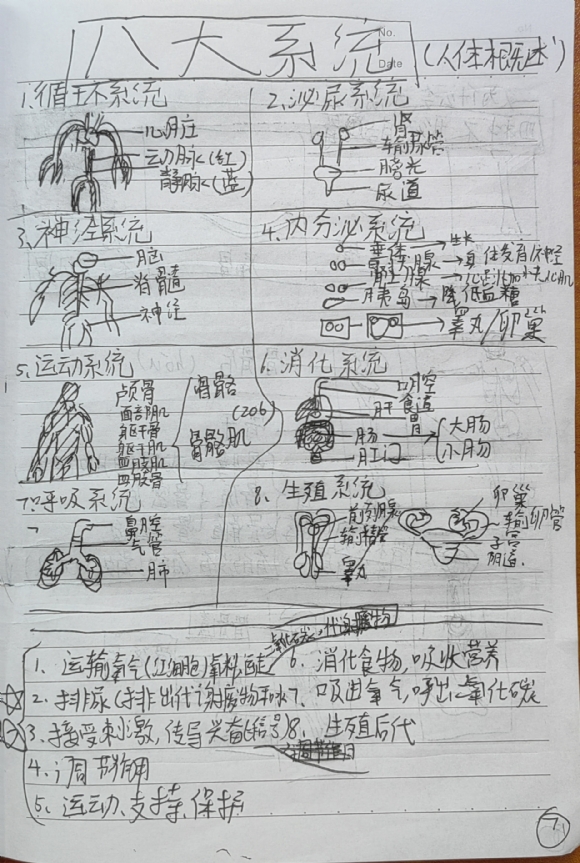 No.
Date
八大系统
(人体概述)
1.循环系统
心脏
动脉(红)
静脉(蓝)
2.泌尿系统
肾
输尿管
膀光
尿道
3.神经系统
脑
脊髓
神经
4.内分泌系统
垂体→生长
腺→
腺→
胰岛→降低血糖
睾丸/卵巢
5.运动系统
颅骨
面部肌
躯干骨
躯干肌
四肢肌
四肢骨
骨骼
(206)
骨骼肌
6.消化系统
口腔
食道
肝
胃
肠
大肠
小肠
肛门
7.呼吸系统
鼻腔
气管
肺
8.生殖系统
前列腺
输精管
睾丸
卵巢
输卵管
子宫
阴道
二氧化碳,代谢废物
1.运输氧气(红细胞)
2.排尿(排出代谢废物和水)
3.接受刺激,传导兴奋(信号)
4.调节作用
5.运动、支持、保护
6.消化食物,吸收营养
7.吸进氧气,呼出二氧化碳
8.生殖后代
7